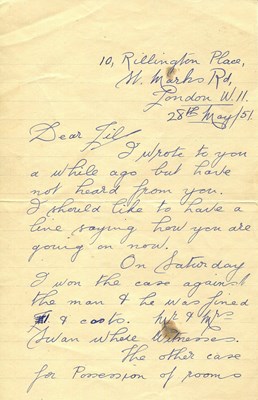 10, Rillington Place,
St. Marks Rd,
London W.11.
28th May/51.
Dear
I wrote to you
a while ago but have
not heard from you.
I should like to have a
line saying how you are
going on now.
On Saturday
I won the case against
the man & he was fined
& costs. Mr & Mrs
Swan where Witnesses.
The other case
for Possession of rooms